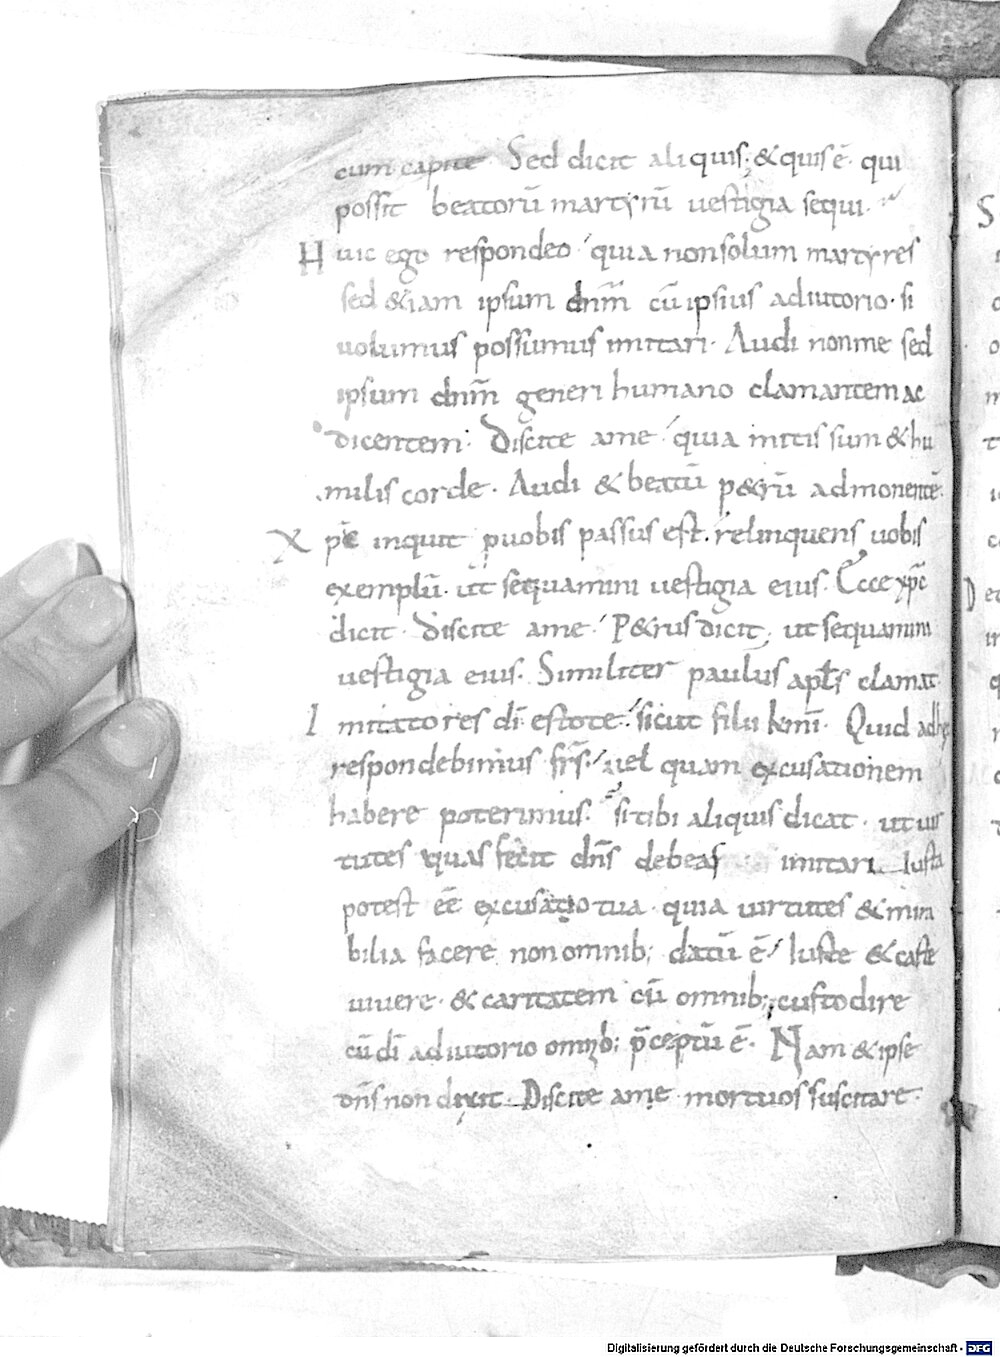 cum capite Sed dicit aliquis; & quis ē· qui
possit beatorū martyrū uestigia sequi·
Huic ego respondeo quia non solum martyres
sed &iam ipsum dnm̄ cū ipsius adiutorio· si
uolumus possumus imitari· Audi non me sed
ipsum dnm̄ generi humano clamantem ac
dicentem· Discite a me quia mitis sum & hu
milis corde· Audi & beatū p&rū admonentē·
Xp̄c inquit p uobis passus est· relinquens uobis
exemplū· ut sequamini uestigia eius· Ecce xp̄c
dicit· Discite a me· P&rus dicit, ut sequamini
uestigia eius· Similiter paulus apłs clamat·
Imitatores dī estote· sicut filii kmi̅· Quid ad hęc
respondebimus frs̄· uel quam excusationem
habere poterimus· si tibi aliquis dicat· ut uir
tutes quas fecit dn̄s debeas imitari iusta
potest eē excusatio tua· quia uirtutes & mira
bilia facere non omnib; datū ē· Iuste & caste
uiuere· & caritatem cū omnib; custodire
cū dī adiutorio omnib; p̄ceptū ē· Nam & ipse
dn̄s non dixit Discite a me mortuos suscitare·
Digitalisierung gefördert durch die Deutsche Forschungsgemeinschaft - DFG